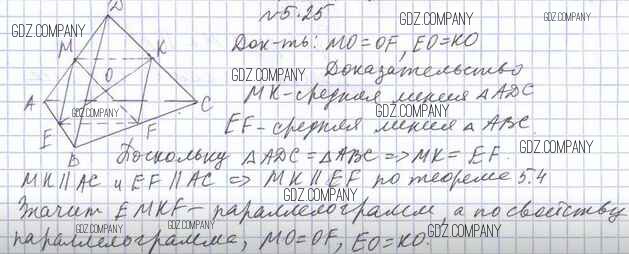 №5.25
D
M
K
O
A
C
E
F
B
Док-ть: MO=OF, EO=KO
Доказательство
MK-средняя линия △ADC
EF-средняя линия △ABC.
Поскольку △ADC=△ABC => MK=EF.
MK||AC и EF||AC => MK||EF по теореме 5.4
Значит EMKF-параллелограмм, а по свойству
параллелограмма, MO=OF, EO=KO.
GDZ.COMPANY
GDZ.COMPANY
GDZ.COMPANY
GDZ.COMPANY
GDZ.COMPANY
GDZ.COMPANY
GDZ.COMPANY
GDZ.COMPANY
GDZ.COMPANY
GDZ.COMPANY
GDZ.COMPANY
GDZ.COMPANY